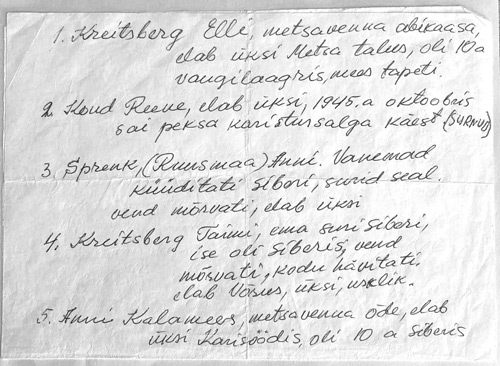 1. Kreitsberg Elli, metsavenna abikaasa,
elab üksi Metsa talus, oli 10 a
vangilaagris, mees tapeti.
2. Koud Reene, elab üksi, 1945. a oktoobris
sai peksa karistursalga käest (SURNUD)
3. Sprenk, (Ruusmaa) Anni. Vanemad
küüditati Siberi, surid seal.
vend mõrvati, elab üksi
4. Kreitsberg Taimi, ema suri Siberi,
ise oli Siberis, vend
mõrvati, kodu hävitati.
elab Võsus, üksi, usklik.
5. Anni Kalamees, metsavenna õde, elab
üksi Karisöödis, oli 10 a Siberis